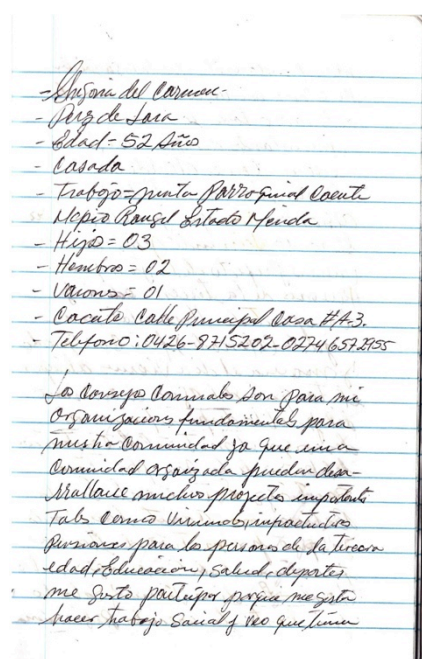 del Carmen-
- de Lara
- Edad = 52 Años
- Casada
- Trabajo = Junta Parroquial Cacute
Mcpio Rangel Estado Merida
- Hijos = 03
- Hembras = 02
- Varons = 01
- Cacute Calle Principal Casa #A-3.
- Telefono: 0426-8715202-02746572955
Los Consejos Comunales Son para mi
Organizaciones fundamentales para
nuestra Comunidad ya que en una
Comunidad organizada pueden desa-
rrollarse muchos proyectos importantes
Tales como Viviendas,
Pensiones para las personas de la tercera
edad, Educación, Salud, deportes
me gusta participar porque me gusta
hacer trabajo Social y veo que